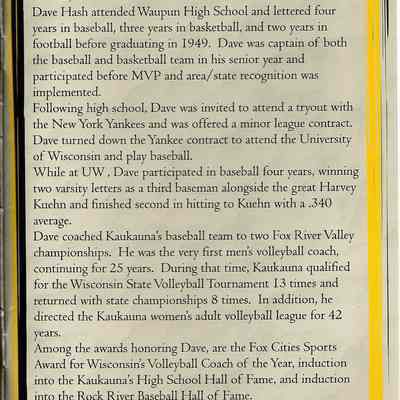 Dave Hash attended Waupun High School and lettered four
years in baseball, three years in basketball, and two years in
football before graduating in 1949. Dave was captain of both
the baseball and basketball team in his senior year and
participated before MVP and area/state recognition was
implemented.
Following high school, Dave was invited to attend a tryout with
the New York Yankees and was offered a minor league contract.
Dave turned down the Yankee contract to attend the University
of Wisconsin and play baseball.
While at UW , Dave participated in baseball four years, winning
two varsity letters as a third baseman alongside the great Harvey
Kuehn and finished second in hitting to Kuehn with a .340
average.
Dave coached Kaukauna's baseball team to two Fox River Valley
championships. He was the very first men's volleyball coach,
continuing for 25 years. During that time, Kaukauna qualified
for the Wisconsin State Volleyball Tournament 13 times and
returned with state championships 8 times. In addition, he
directed the Kaukauna women's adult volleyball league for 42
years.
Among the awards honoring Dave, are the Fox Cities Sports
Award for Wisconsin's Volleyball Coach of the Year, induction
into the Kaukauna's High School Hall of Fame, and induction
into the Rock River Baseball Hall of Fame.